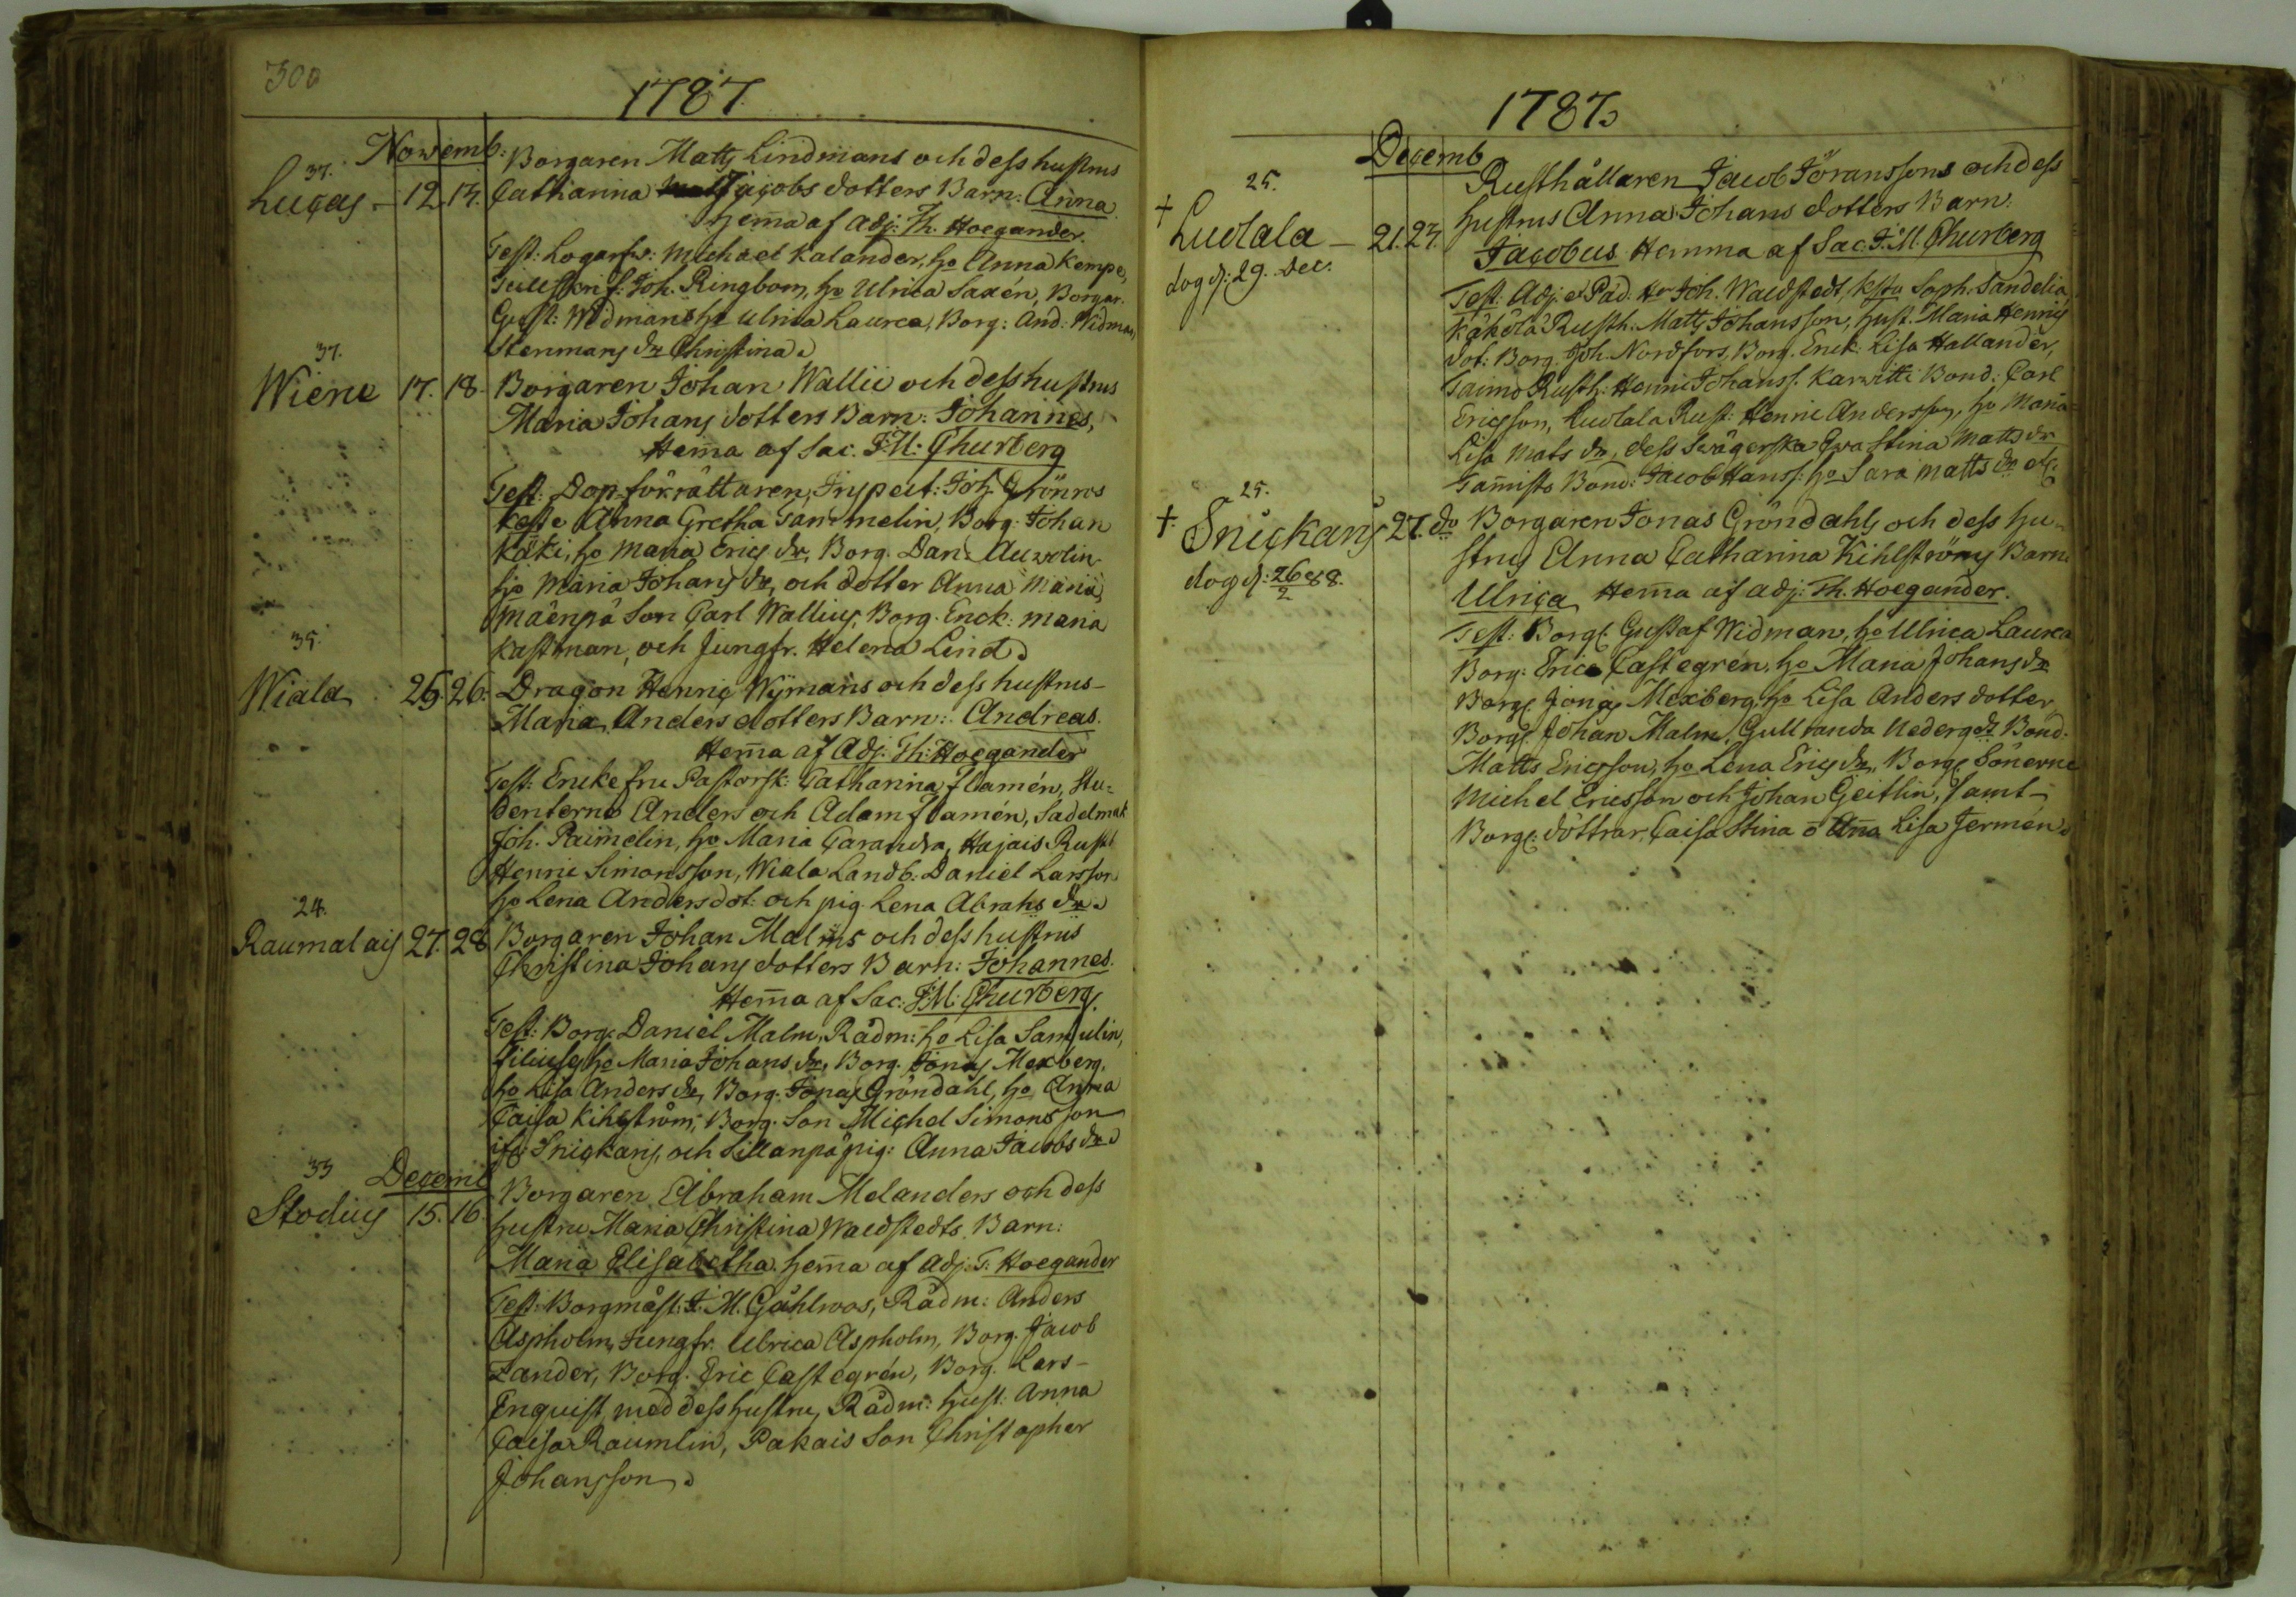 300
1787
Novemb:
37.
Lucas - 12. 13.
Borgaren Matts Lindmans och dess hustrus
Catharina Jacobs dotters Barn: Anna
Hem̄a af Adj: Th. Hoegander.
Test: Michael Kalander, ho Anna Kempe,
Joh. Ringbom, ho Ulrica Saxén, Borgar.
Gust: Widman ho Ulrica Laurea, Borg: And: Widman,
Stenmans dr Christina
37.
Wiene 17. 18.
Borgaren Johan Wallii och dess hustrus
Maria Johans dotters Barn: Johannes,
Hem̄a af Sac. J.M: Churberg
Test: Dop-förrättaren, Joh: Grönros
Anna Gretha Tammelin, Borg. Johan
Käki, ho Maria Erics dr, Borg. Dan:
ho Maria Johans dr, och dotter Anna Maria,
Mäenpä Son Carl Wallius, Borg. Enck: Maria
Kastman, och Jungfr. Helena Lind
35.
Wiala 25. 26.
Dragon Henric Wijmans och dess hustrus
Maria Anders dotters Barn: Andreas.
Hem̄a af Adj: Th: Hoegander
Test: Enkefru Pastorsk: Catharina Flamén, Stu-
denterne Anders och Adam Flamén, Sadelmak
Joh. Paimelin, ho Maria Carandra, Hajais Rust
Henric Simonsson, Wiala Landb: Daniel Larsson
ho Lena Andersdot: och pig. Lena Abrahs dr
24.
Raumalais 27. 28
Borgaren Johan Malms och dess hustrus
Christina Johans dotters Barn: Johannes.
Hem̄a af Sac: J.M: Churberg.
Test: Borg: Daniel Malm, Rådm: ho Lisa Samulin,
ho Maria Johans dr, Borg. Jonas Mexberg,
ho Lisa Anders dr, Borg. Jonas Gröndahl, ho Anna
Caisa Kihlström, Borg. Son Michel Simonsson
ifr. Snickars, och Sillanpä pig: Anna Jacobs dr
33
Decemb
Stodius 15. 16.
Borgaren Abraham Melanders och dess
hustru Maria Christina Waldstedts Barn:
Maria Elisabetha hem̄a af Adj: T. Hoegander
Test: Borgmäst: J. M. Gåhlroos, Rådm: Anders
Aspholm, Jungfr. Ulrica Aspholm, Borg. Jacob
Zander, Borg. Eric Castegrén, Borg. Lars
Enquist, med dess hustru, Rådm: hust: Anna
Caisa Raumlin, Pakais Son Christopher
Johansson
1787
Decemb
25.
†
Luolala - 21. 23.
dog d: 29. Dec.
Rusthållaren Jacob Jöranssons och dess
hustrus Anna Johans dotters Barn:
Jacobus Hemma af Sac: J.M. Churberg
Test: Adj: et Päd: Hr Joh. Waldstedt, Soph. Sandelia
Käköla Rusth. Matts Johansson, hust. Maria Henrics
dot: Borg. Joh. Nordfors, Borg. Enck: Lisa Hallander,
Taimo Rusth: Henric Johanss: Karwetti Bond: Carl
Ericsson, Luolala Rust: Henric Andersson, ho Maria
Lisa Mats dr, dess Swägerska Ewa Stina Matts dr
Tammisto Bond: Jacob Hanss: ho Sara Matts dr etc.
25.
†
Snickars 27. do
dog d: 26/2 88.
Borgaren Jonas Gröndahls och dess hu-
strus Anna Catharina Kihlströms Barn:
Ulrica Hem̄a af adj: Th. Hoegander.
Test: Borg: Gustaf Widman, ho Ulrica Laurea
Borg: Eric Castegren, ho Maria Johans dr
Borg: Jonas Mexberg, ho Lisa Anders dotter
Borg: Johan Malm, Gullranda Nedergd. Bond:
Matts Ericsson, ho Lena Erics dr, Borg: Sönerne
Michel Ericsson och Johan Geitlin, samt
Borg: döttrar, Caisa Stina o An̄a Lisa Jermén